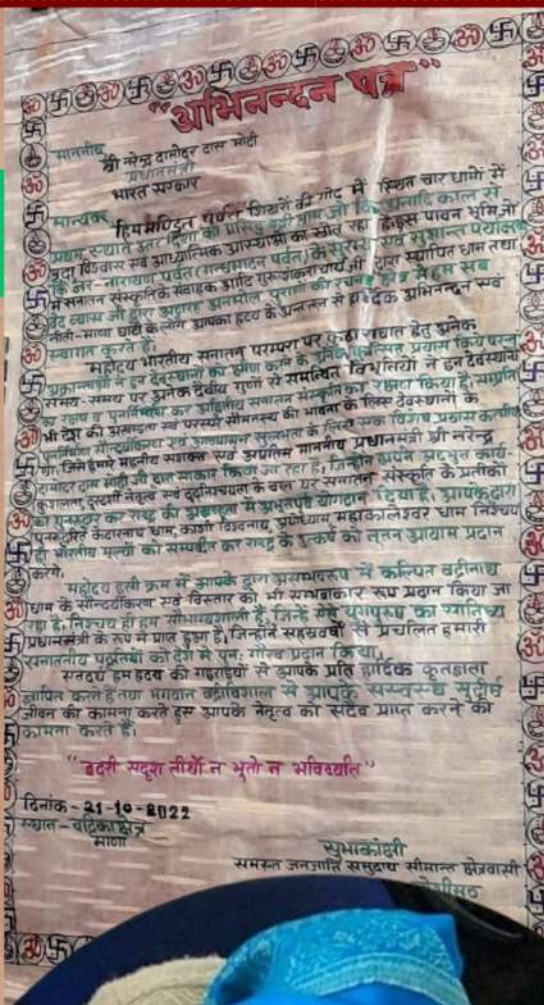 "अभिनन्दन पत्र"
माननीय
श्री नरेन्द्र दामोदर दास मोदी
प्रधानमंत्री
भारत सरकार
मान्यवर
हिममण्डित पर्वत शिखरों की गोद में स्थित चार धामों में
प्रथम, उत्तर दिशा धाम जो कि अनादि काल से
श्रद्धा विश्वास एवं आध्यात्मिक आस्थाओं का स्रोत रहा पावन भूमि जो
कि नर-नारायण पर्वत (गन्धमादन पर्वत) के सुरम्य एवं सुशान्त
में सनातन संस्कृति के संवाहक आदि गुरु शंकराचार्य जी द्वारा स्थापित धाम तथा
वेद व्यास जी द्वारा अनमोल पुराणों की रचना क्षेत्र में हम सब
नीती-माणा घाटी के लोग आपका हृदय के अन्तस्तल से हार्दिक अभिनन्दन एवं
स्वागत करते हैं।
महोदय भारतीय सनातन परम्परा पर हेतु अनेक
ने इन देवस्थानों का प्रयास किये परन्तु
समय-समय पर अनेक दैवीय गुणों से विभूतियों ने इन देवस्थानों
का रक्षण व कर अद्वितीय सनातन संस्कृति का रक्षण किया है।
भी देश की अखण्डता एवं परस्पर सौमनस्य की भावना के लिए देवस्थानों के
एवं सुलभता के लिए एक विशेष प्रयास
जिसे हमारे सशक्त एवं माननीय प्रधानमंत्री श्री नरेन्द्र
दामोदर दास मोदी जी द्वारा साकार किया जा रहा है, जिन्होंने अपने अद्भुत कार्य-
कुशलता, दूरदर्शी नेतृत्व एवं के बल पर सनातन संस्कृति के प्रतीकों
का कर राष्ट्र की अखण्डता में अभूतपूर्व योगदान दिया है, आपके द्वारा
केदारनाथ धाम, काशी विश्वनाथ, महाकालेश्वर धाम निश्चय
ही भारतीय मूल्यों को कर राष्ट्र के उत्कर्ष को नूतन आयाम प्रदान
करेंगे।
महोदय इसी क्रम में आपके द्वारा में कल्पित बद्रीनाथ
धाम के सौन्दर्यीकरण एवं विस्तार को भी रूप प्रदान किया जा
रहा है, निश्चय ही हम सौभाग्यशाली हैं, जिन्हें ऐसे युगपुरुष का
प्रधानमंत्री के रूप में प्राप्त हुआ है, जिन्होंने से प्रचलित हमारी
सनातनीय को देश में पुनः गौरव प्रदान किया,
हम हृदय की गहराईयों से आपके प्रति हार्दिक कृतज्ञता
ज्ञापित करते हैं तथा भगवान बद्रीविशाल से आपके सुदीर्घ
जीवन की कामना करते हुए आपके नेतृत्व को सदैव प्राप्त करने की
कामना करते हैं।
"बदरी सदृश तीर्थो न भूतो न भविष्यति"
दिनांक - 21-10-2022
स्थान - बद्रिका क्षेत्र
माणा
सुभाकांक्षी
समस्त जनजाति समुदाय सीमान्त क्षेत्रवासी